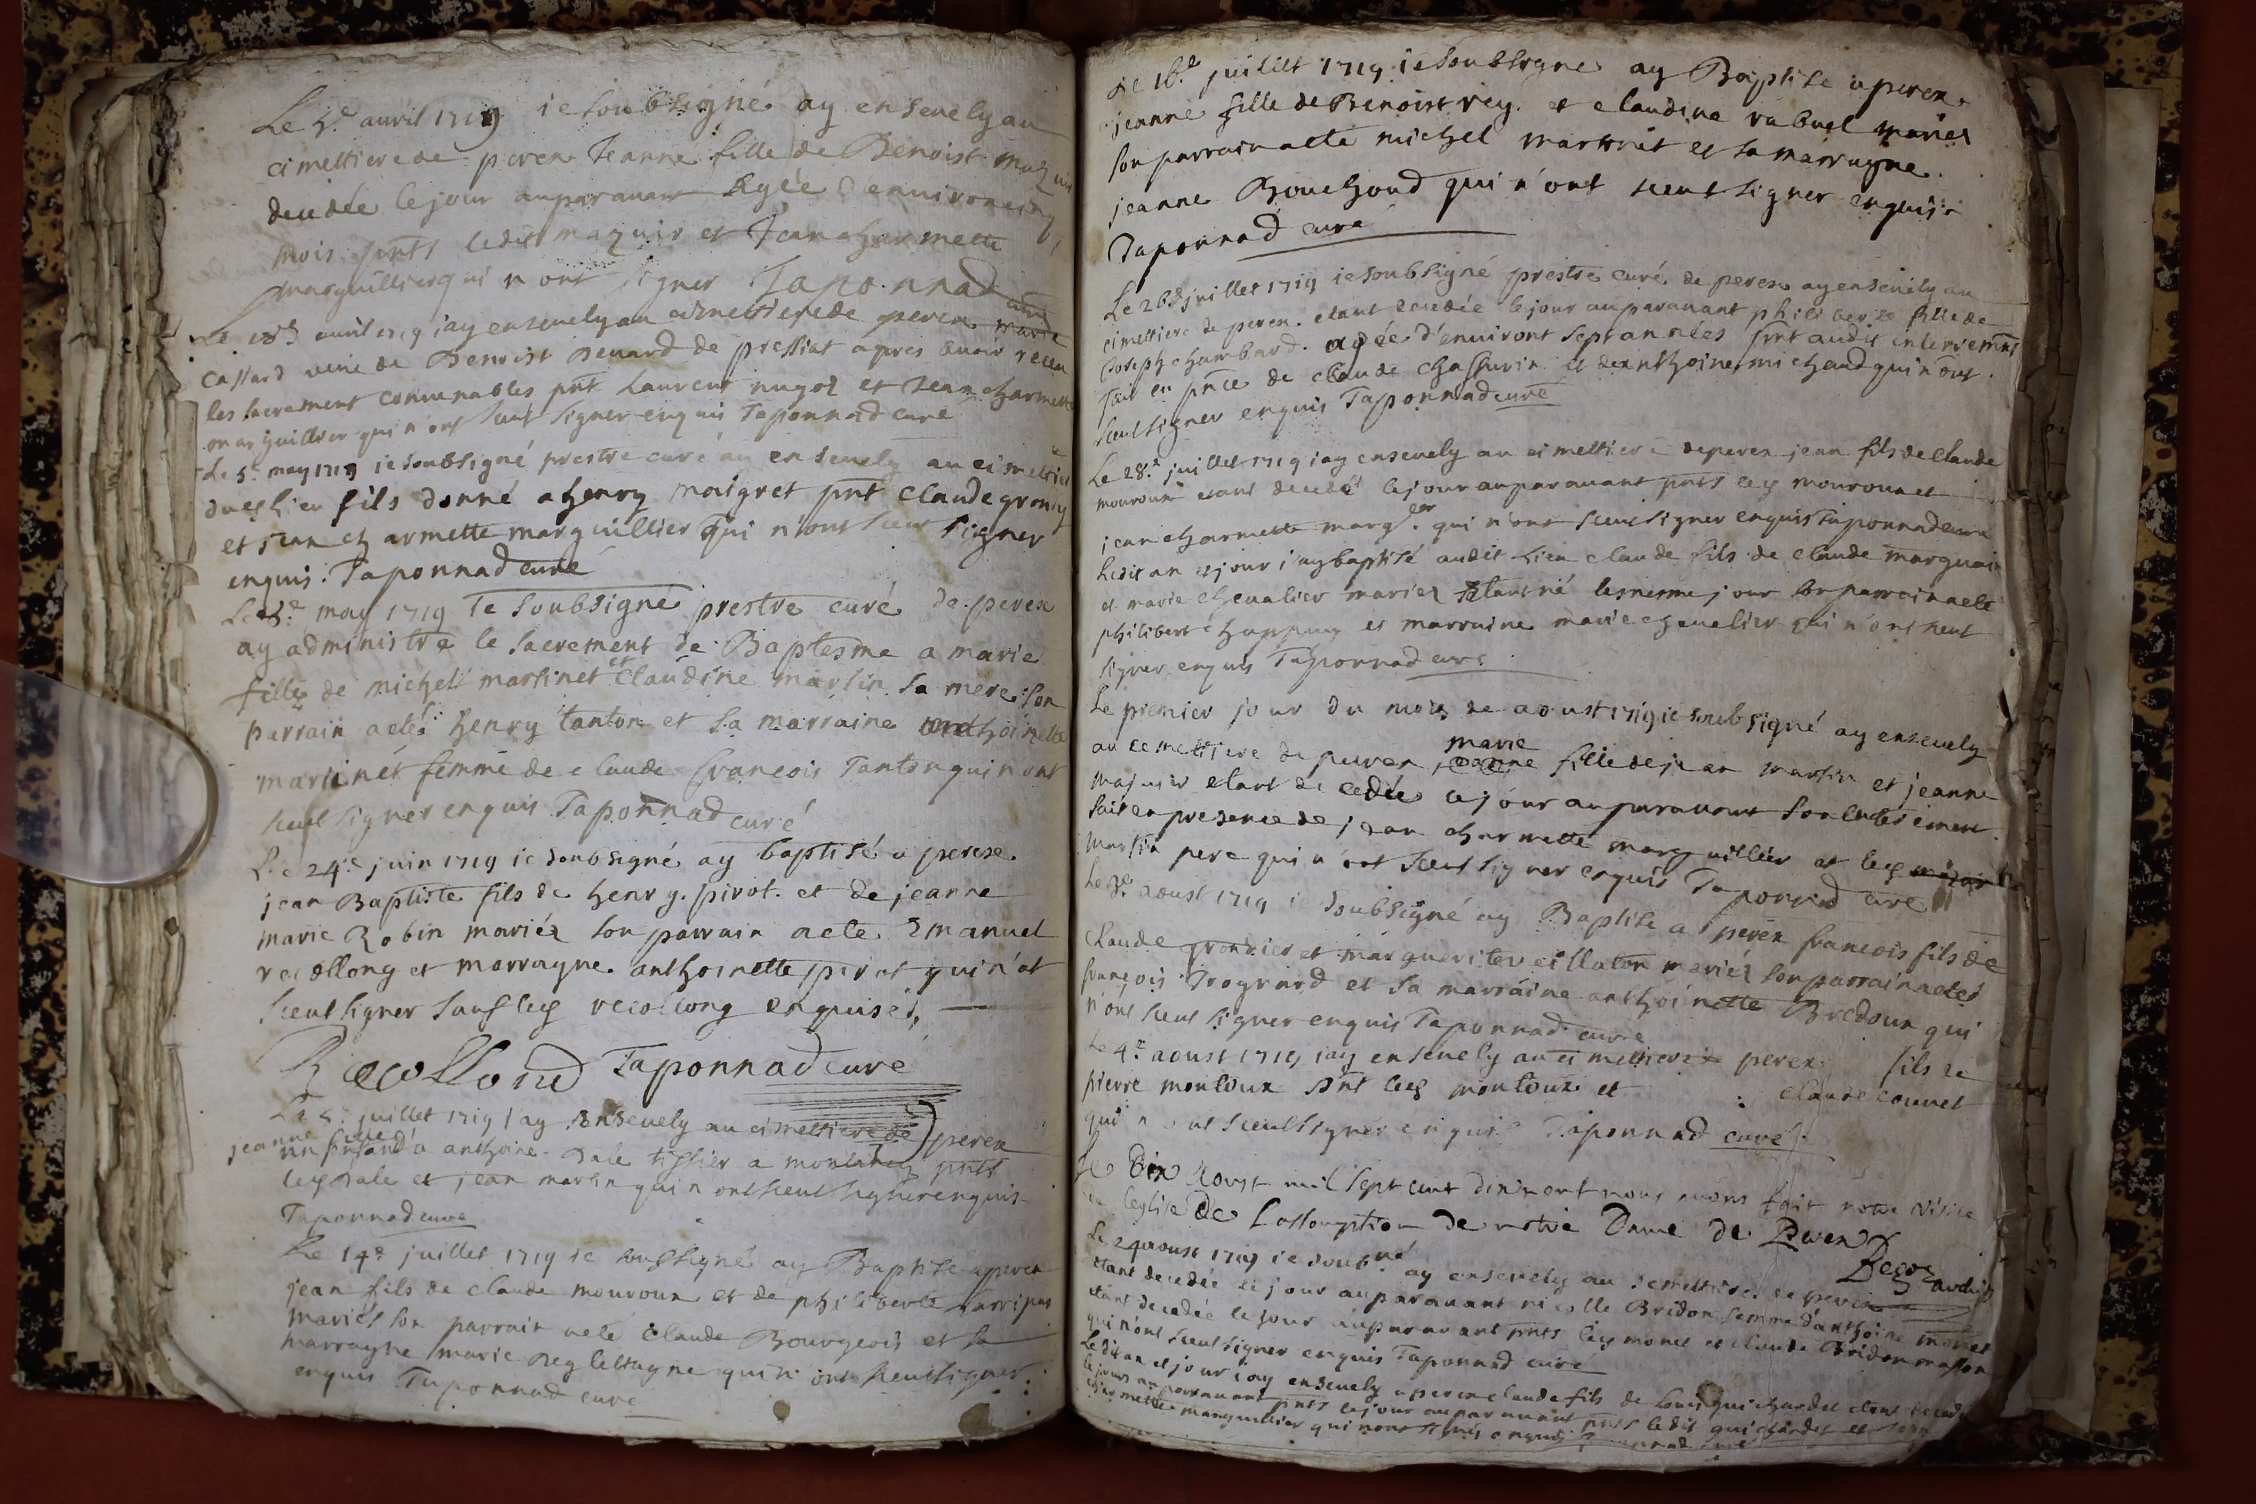 Le 4e auril 1719 ie soubsigné ay enseuely au
cimettiere de perex Jeanne fille de Benoist maquis
decedée le jour auparauant Agée d'enuiron cinq
mois pnts ledit maquis et Jean charmette
marguillier qui n ont signer Taponnad curé
auril 1719 iay enseuely au cimettiere de perex marie
Cassard veuue de Benoist Reuard de pressiat apres auoir receu
les sacrement conuenables pnt Laurent nugoz et Jean charmette
marguillier qui n ont sceut signer enquis Taponnad curé
Le 5e may 1719 ie soubsigné prestre curé ay enseuely au cimettiere
du lieu fils donné a henry maigret pnt claude
et jean charmette marguillier qui n'ont sceut signer
enquis. Taponnad curé
may 1719 Je soubsigné prestre curé de perex
ay administre le sacrement de Baptesme a marie
fille de michel martinet et claudine martin sa mere son
parrain a eté henry tanton et sa marraine anthoinette
martinet femme de claude francois Tanton qui n ont
sceut signer enquis Taponnad curé
Le 24e juin 1719 ie soubsigné ay baptisé a perex
jean Baptiste fils de henry pirot et de jeanne
marie Robin mariéz son parrain a ete Emanuel
recollong et marrayne anthoinette pirot qui n'at
sceut signer sauf led recollong enquisés
Taponnad curé
juillet 1719 j'ay enseuely au cimettiere de perex
jeanne fille d'a anthoine Dale tissier a pnts
led Dale et jean martin qui n ont sceut signer enquis
Taponnad curé
Le 14e juillet 1719 ie soussigné ay Baptise a perex
jean fils de claude mouroux et de philiberte
mariés son parrain a eté Claude Bourgeois et sa
marrayne marie qui n' ont sceut signer
enquis Taponnad curé
Le 16e juillet 1719 ie soubsigne ay Baptise a perex
jeanne fille de Benoist rey et claudine rabuel mariés
son parrain a eté michel martinet et sa marrayne
jeanne Bouchoud qui n'ont sceut signer enquis
Taponnad curé
Le 26e juillet 1719 ie soubsigné prestre curé de perex ay enseuely au
cimettiere de perex etant decedée le jour auparauant philiberte fille de
Joseph chambard agée d'enuiront sept années pnt audit enterremens
fait en pnce de claude chassurin et d'anthoine michaud qui n'ont
sceut signer enquis Taponnad curé
Le 28e juillet 1719 iay enseuely au cimettiere de perex jean fils de Claude
mouroux etant decedé le jour auparauant pnts led mouroux et
jean charmette margler qui n'ont sceut signer enquis Taponnad curé
Ledit an et jour j'ay baptisé audit lieu claude fils de claude
et marie cheualier mariez etant né le mesme jour son parrain a eté
philibert chappuy et marraine marie cheualier qui n'ont sceut
signer enquis Taponnad curé
Le premier jour du mois de aoust 1719 ie soubsigné ay enseuely
au cemettiere de perex marie fille de jean martin et jeanne
etant decedée le jour auparauant son enterrement
fait en presence de jean charmette marguillier et led
martin pere qui n'ont sceut signer enquis Taponnad curé
Le 3e aoust 1719 ie soubsigné ay Baptise a perex francois fils de
claude et marguerite mariéz son parrain a eté
françois et sa marraine anthoinette Bredoux qui
n'ont sceut signer enquis Taponnad curé
Le 4e aoust 1719 iay enseuely au cimettiere de perex fils de
pierre montoux pnt led montoux et claude couuet
qui n ont sceut signer enquis Taponnad curé
Le Dix Aoust mil sept cent dixneuf nous auons fait notre visite
en leglise de Lassomption de notre Dame de Perex
Le 24 aoust 1719 ie soubné ay enseuely au cemettiere de perex
etant decedée le jour auparauant nicolle Bridon femme d'anthoine monet
etant decedée le jour auparauant pnts led monet et claude Bridon masson
qui n'ont sceut signer enquis Taponnad curé
Ledit an et jour iay enseuely a perex claude fils de Louis guichardet etant decedé
le jour auparauant pnts le jour auparauant pnts ledit guichardet et
charmette marguillier qui n'ont